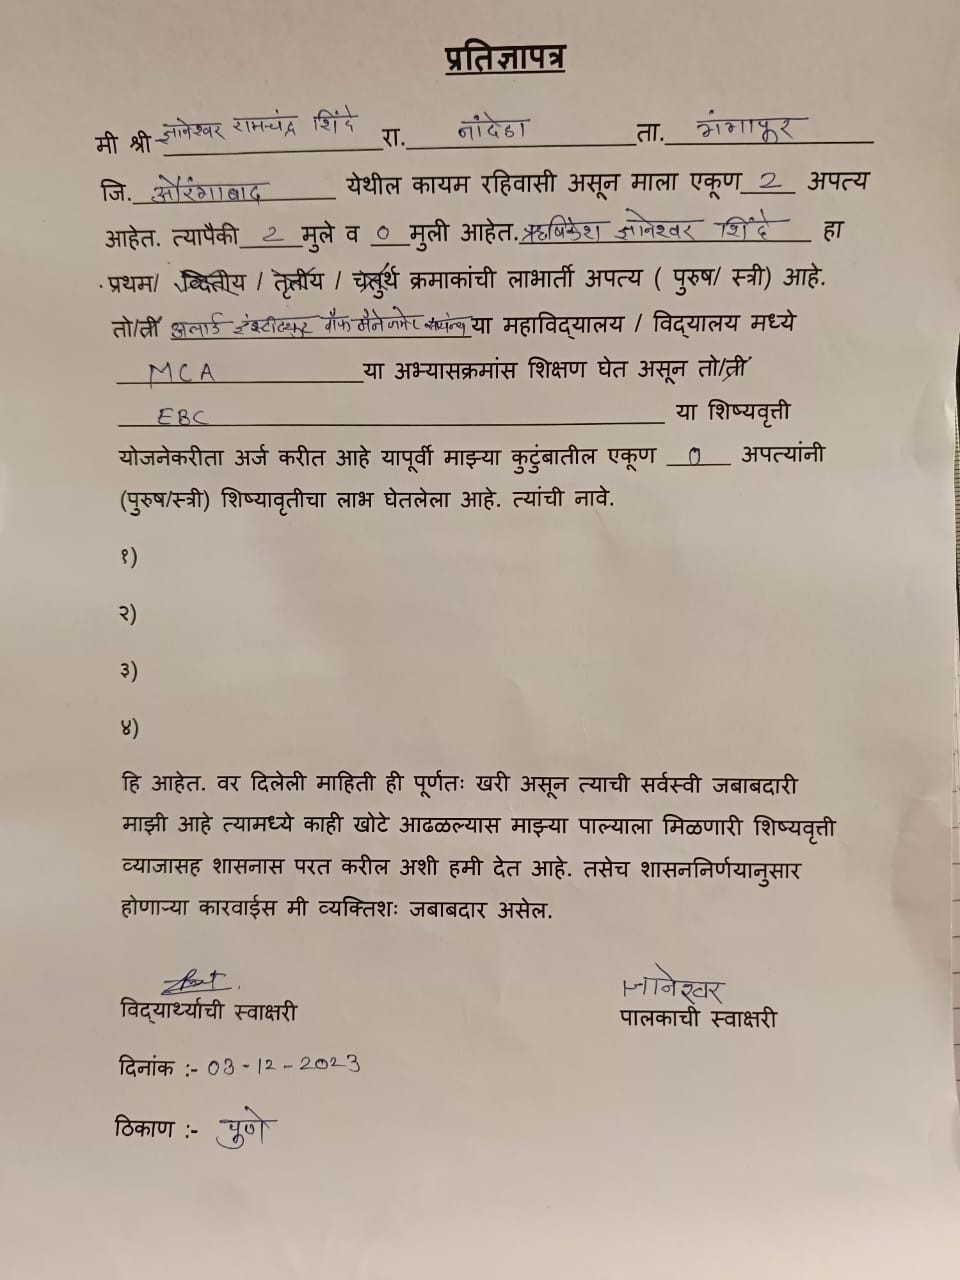 प्रतिज्ञापत्र
मी श्री ज्ञानेश्वर रामचंद्र शिंदे रा. नांदेडा ता. गंगापूर
जि. औरंगाबाद येथील कायम रहिवासी असून माला एकूण 2 अपत्य
आहेत. त्यापैकी 2 मुले व 0 मुली आहेत. ऋषिकेश ज्ञानेश्वर शिंदे हा
प्रथम/ व्दितीय / तृतीय / चतुर्थ क्रमाकांची लाभार्ती अपत्य ( पुरुष/ स्त्री) आहे.
तो/ती अलार्ड इंस्टीट्यूट ऑफ मॅनेजमेंट सायन्स या महाविद्यालय / विद्यालय मध्ये
MCA या अभ्यासक्रमांस शिक्षण घेत असून तो/ती
EBC या शिष्यवृत्ती
योजनेकरीता अर्ज करीत आहे यापूर्वी माझ्या कुटुंबातील एकूण 0 अपत्यांनी
(पुरुष/स्त्री) शिष्यावृतीचा लाभ घेतलेला आहे. त्यांची नावे.
१)
२)
३)
४)
हि आहेत. वर दिलेली माहिती ही पूर्णतः खरी असून त्याची सर्वस्वी जबाबदारी
माझी आहे त्यामध्ये काही खोटे आढळल्यास माझ्या पाल्याला मिळणारी शिष्यवृत्ती
व्याजासह शासनास परत करील अशी हमी देत आहे. तसेच शासननिर्णयानुसार
होणाऱ्या कारवाईस मी व्यक्तिशः जबाबदार असेल.
ज्ञानेश्वर
विद्यार्थ्याची स्वाक्षरी पालकाची स्वाक्षरी
दिनांक :- 03-12-2023
ठिकाण :- पुणे